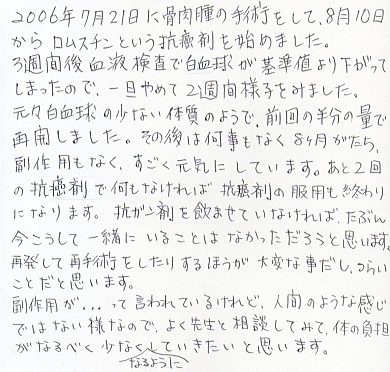 2006年7月21日に骨肉腫の手術をして、8月10日
から ロムスチンという抗癌剤を始めました。
3週間後血液検査で白血球が基準値より下がって
しまったので、一旦やめて2週間様子をみました。
元々白血球の少ない体質のようで、前回の半分の量で
再開しました。その後は何事もなく8ヶ月がたち、
副作用もなく、すごく元気にしています。あと2回
の抗癌剤で何もなければ 抗癌剤の服用も終わり
になります。抗ガン剤を飲ませていなければ、たぶん
今こうして一緒にいることはなかっただろうと思います。
再発して再手術をしたりするほうが大変な事だし、つらい
ことだと思います。
副作用が...って言われているけれど、人間のような感じ
ではない様なので、よく先生と相談してみて、体の負担
がなるべく少なくしていきたいと思います。
なるように